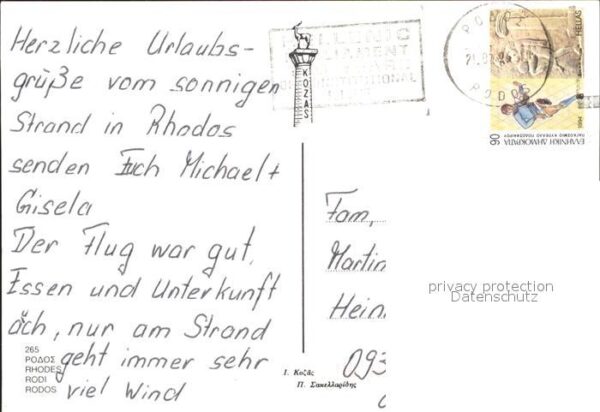 Herzliche Urlaubs-
grüße vom sonnigen
Strand in Rhodos
senden Euch Michael +
Gisela
Der Flug war gut,
Essen und Unterkunft
auch, nur am Strand
geht immer sehr
viel Wind
265
ΡΟΔΟΣ
RHODES
RODI
RODOS
KOZAS
Ι. Κοζᾶς
Π. Σακελλαρίδης
HELLENIC
PARLIAMENT
90
ΕΛΛΗΝΙΚΗ ΔΗΜΟΚΡΑΤΙΑ
ΠΑΓΚΟΣΜΙΟ ΚΥΠΕΛΛΟ ΠΟΔΟΣΦΑΙΡΟΥ
HELLAS
1994
Fam,
Martin
Hein
093
privacy protection
Datenschutz